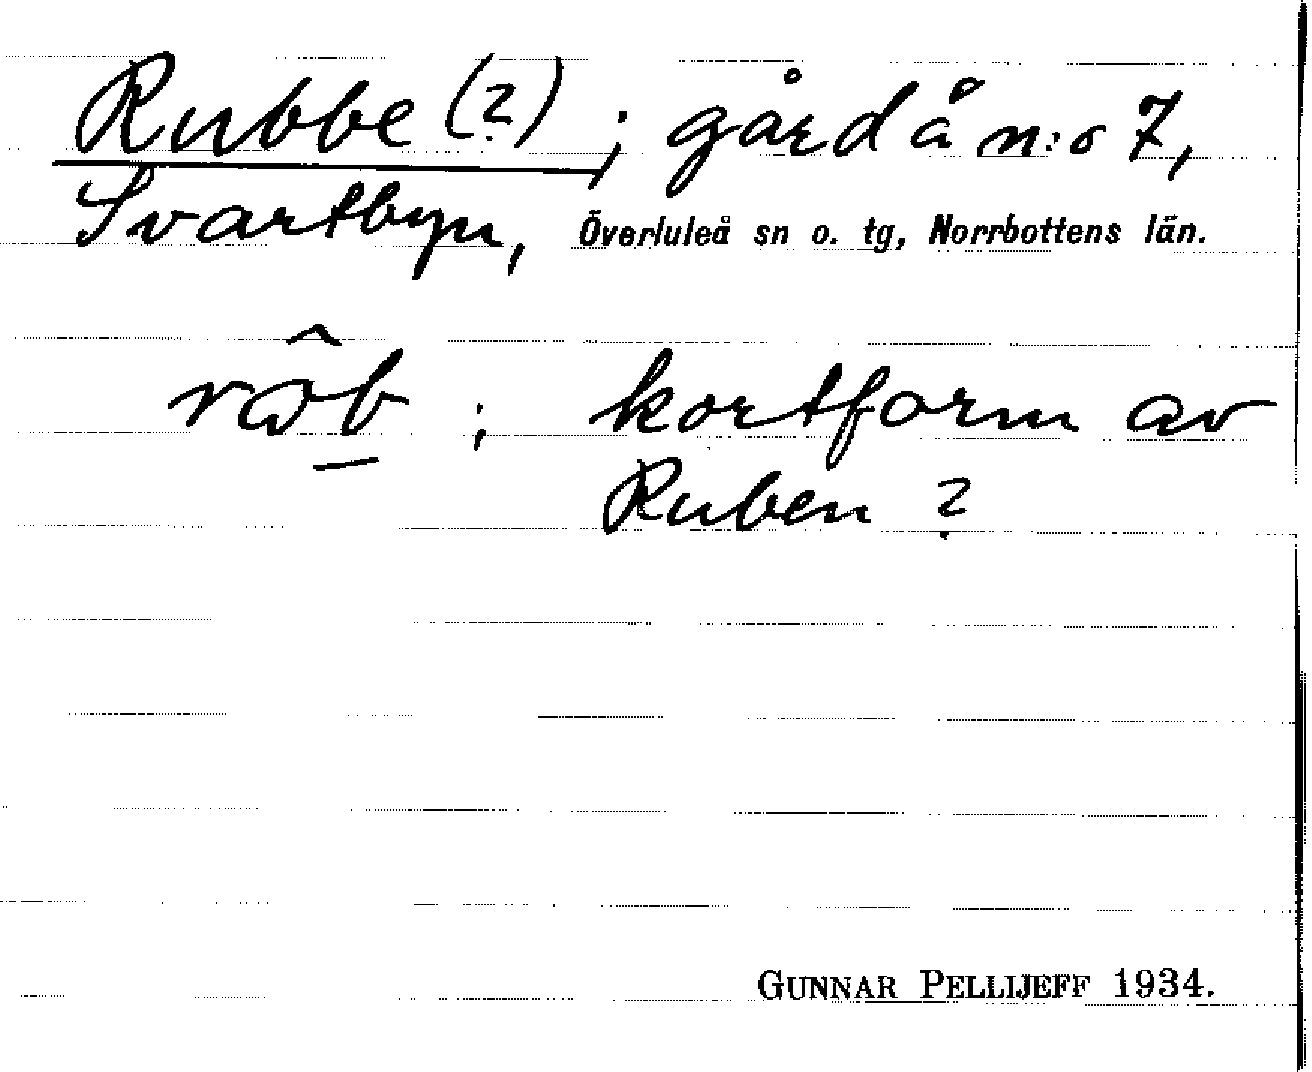 Rubbe (?); gård å n:o 7,
Svartbyn, Överluleå sn o. tg, Norrbottens län.
; kortform av
Ruben ?
GUNNAR PELLIJEFF 1934.